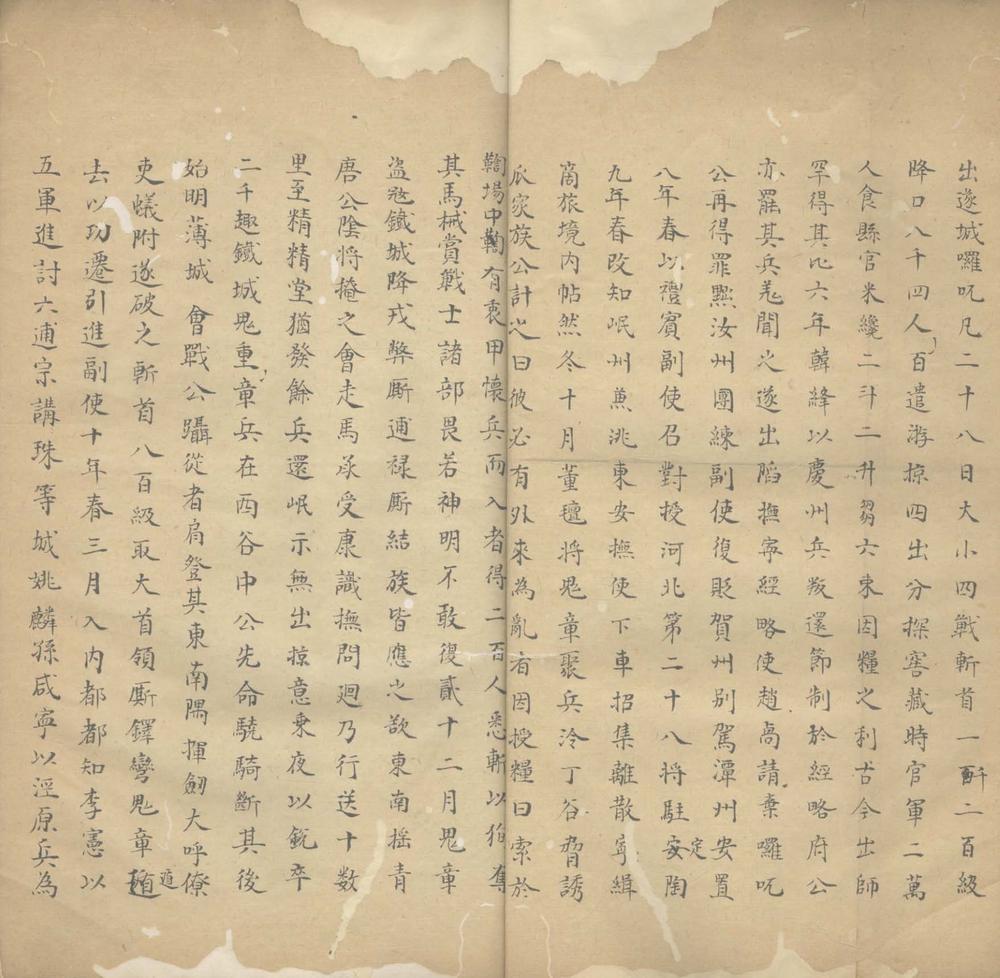 出遂城囉兀凡二十八日大小四戰斬首一千二百級
降口八千四人百遣游掠四出分探窖藏時官軍二萬
人食縣官米纔二斗二升芻六束因糧之利古今出師
罕得其比六年韓絳以慶州兵叛還節制於經略府公
亦罷其兵羌聞之遂出陷撫寧經略使趙卨請棄囉兀
公再得罪黜汝州團練副使復貶賀州别駕潭州安置
八年春以禮賓副使召對授河北第二十八将駐安定陶
九年春改知岷州兼洮東安撫使下車招集離散寧緝
商旅境内帖然冬十月董氊将鬼章聚兵泠丁谷脅誘
㡿家族公計之曰彼必有外來為亂者因授糧曰索於
鞠場中鞠有衷甲懷兵而入者得二百人悉斬以狥隼
其馬械賞戰士諸部畏若神明不敢復貳十二月鬼章
盗冦鐵城降戎弊厮逋禄厮結族皆應之欲東南揺青
唐公陰将掩之會走馬承受康識撫問廻乃行送十数
里至精精堂猶發餘兵還岷示無出掠意乗夜以銳卒
二千趣鐵城鬼重章兵在西谷中公先命驍騎斷其後
始明薄城會戰公躡從者肩登其東南隅揮劒大呼僚
吏蟻附遂破之斬首八百級取大首領厮鐸彎鬼章遁
去以功遷引進副使十年春三月入内都都知李憲以
五軍進討六逋宗講珠等城姚麟孫咸寧以涇原兵為